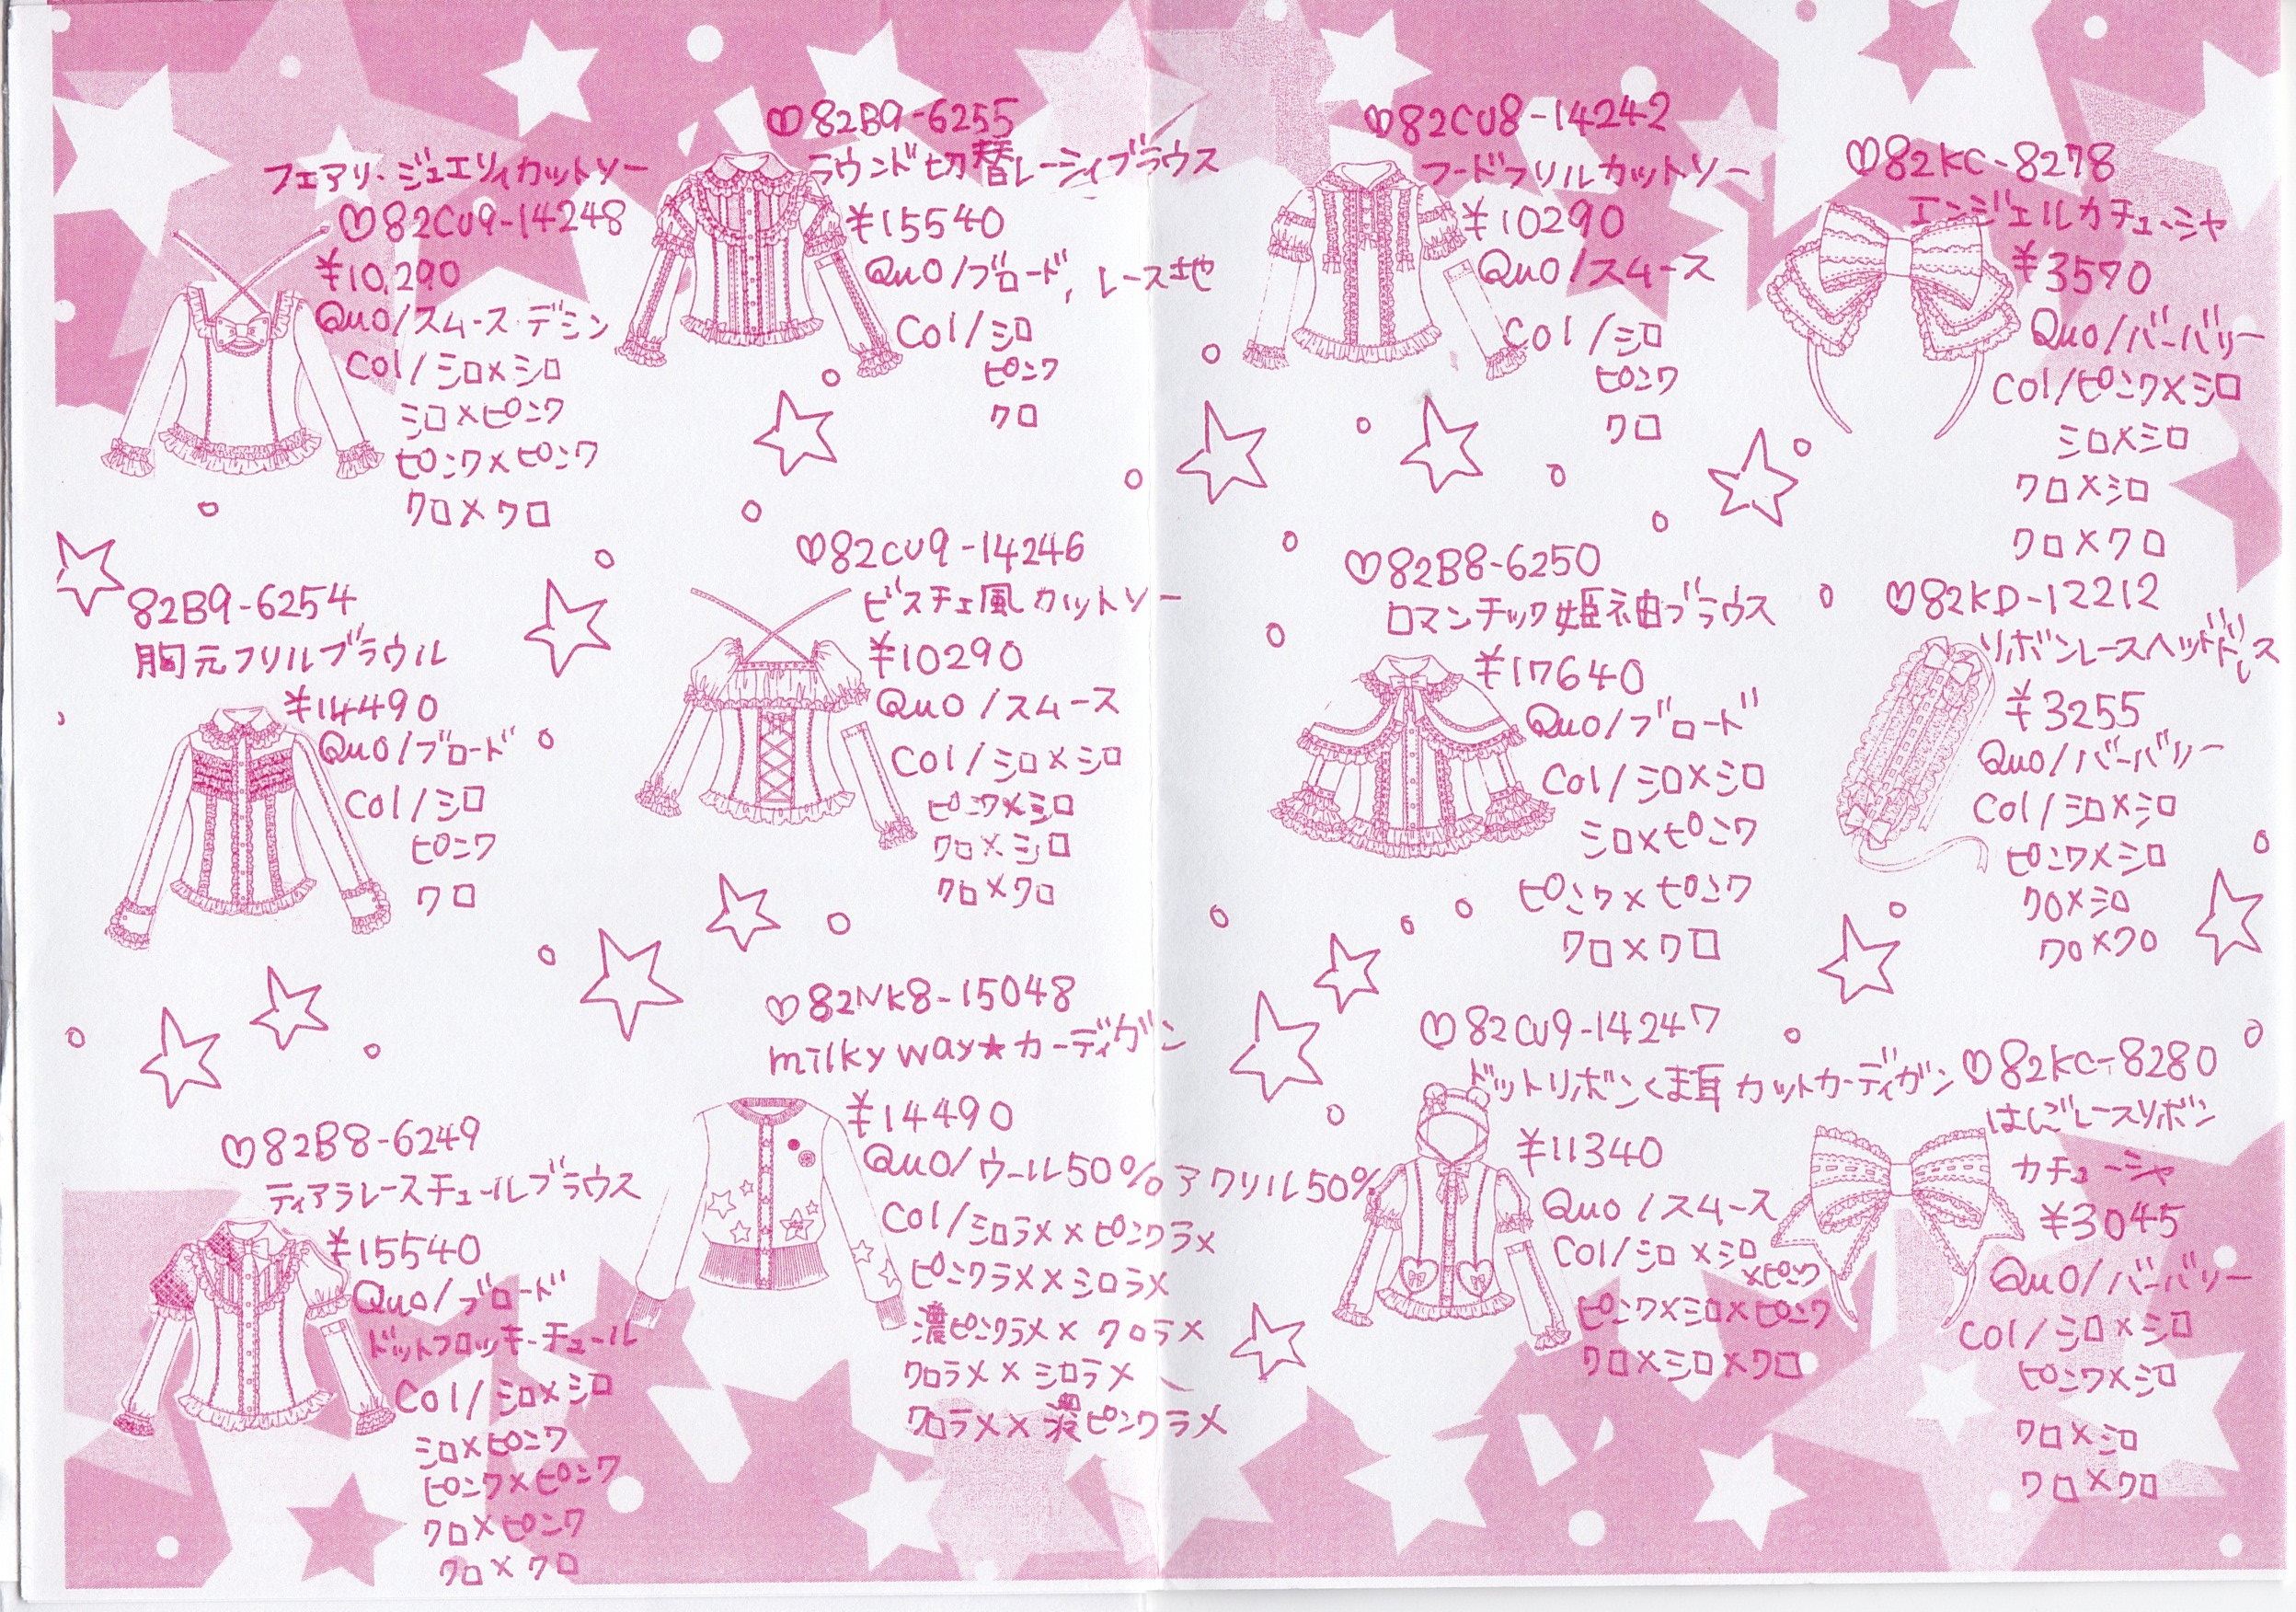 フェアリージュエリィカットソー
♡82CU9-14248
¥10,290
Quo/スムース・デシン
Col/シロ×シロ
シロ×ピンク
ピンク×ピンク
クロ×クロ
82B9-6254
胸元フリルブラウル
¥14490
Quo/ブロード
Col/シロ
ピンク
クロ
♡82B8-6249
ティアラレースチュールブラウス
¥15540
Quo/ブロード
ドットフロッキーチュール
Col/シロ×シロ
シロ×ピンク
ピンク×ピンク
クロ×ピンク
クロ×クロ
♡82B9-6255
ラウンド切替レーシィブラウス
¥15540
Quo/ブロード, レース地
Col/シロ
ピンク
クロ
♡82CU9-14246
ビスチェ風カットソー
¥10290
Quo/スムース
Col/シロ×シロ
ピンク×シロ
クロ×シロ
クロ×クロ
♡82NK8-15048
milky way★カーディガン
¥14490
Quo/ウール50% アクリル50%
Col/シロラメ×ピンクラメ
ピンクラメ×シロラメ
濃ピンクラメ×クロラメ
クロラメ×シロラメ
クロラメ×濃ピンクラメ
♡82CU8-14242
フードフリルカットソー
¥10290
Quo/スムース
Col/シロ
ピンク
クロ
♡82B8-6250
ロマンチック姫袖ブラウス
¥17640
Quo/ブロード
Col/シロ×シロ
シロ×ピンク
ピンク×ピンク
クロ×クロ
♡82CU9-14247
ドットリボンくま耳カットカーディガン
¥11340
Quo/スムース
Col/シロ×シロ
×ピンク
ピンク×シロ×ピンク
クロ×シロ×クロ
♡82KC-8278
エンジェルカチューシャ
¥3570
Quo/バーバリー
Col/ピンク×シロ
シロ×シロ
クロ×シロ
クロ×クロ
♡82KD-12212
リボンレースヘッドドレス
¥3255
Quo/バーバリー
Col/シロ×シロ
ピンク×シロ
クロ×シロ
クロ×クロ
♡82KC-8280
はしごレースリボン
カチューシャ
¥3045
Quo/バーバリー
Col/シロ×シロ
ピンク×シロ
クロ×シロ
クロ×クロ